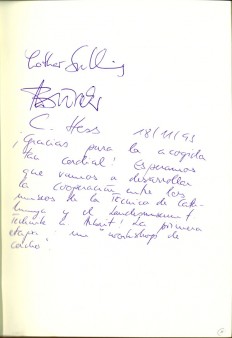 Lothar Suhling
C. Hess 18/11/91
¡Gracias para la acogida
tan cordial! Esperamos
que vamos a desarrollar
la cooperación entre los
museos de la Técnica de Cata-
lunya y el Landesmuseum
Technik & Arbeit! La primera
etapa: un workshop de
corcho!